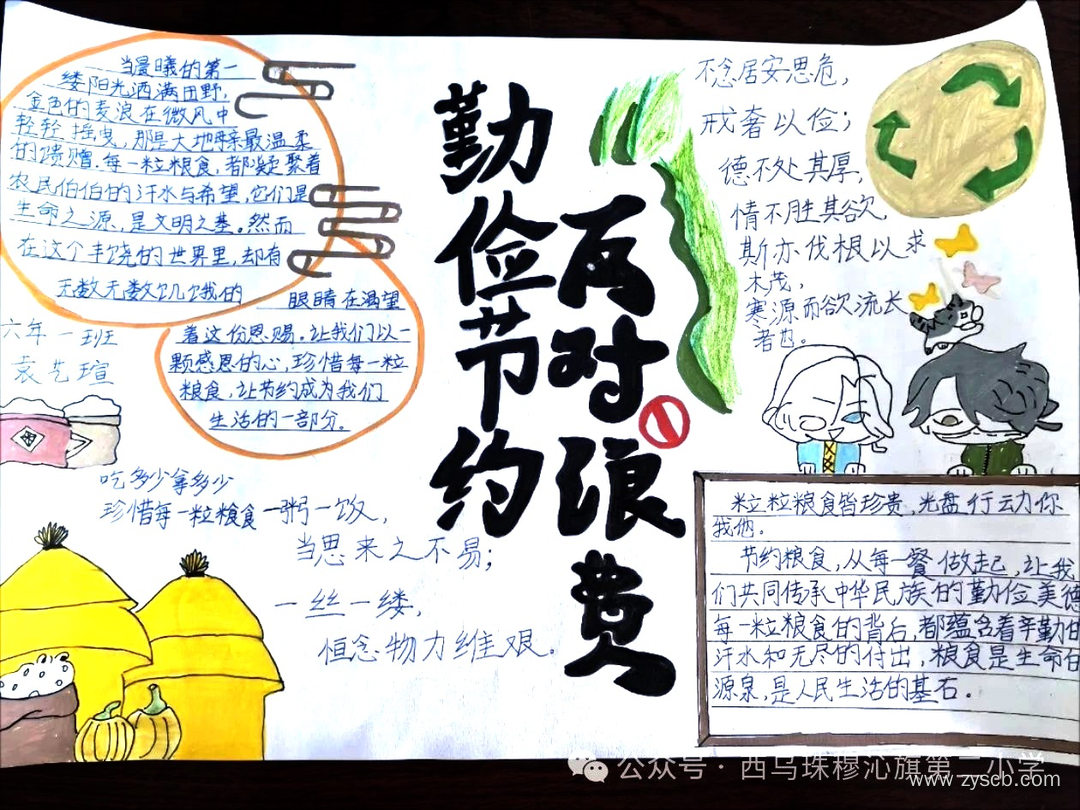 当晨曦的第一
缕阳光洒满田野,
金色的麦浪在微风中
轻轻摇曳,那是大地母亲最温柔
的馈赠.每一粒粮食,都凝聚着
农民伯伯的汗水与希望,它们是
生命之源,是文明之基。然而
在这个丰饶的世界里,却有
无数无数饥饿的 眼睛在渴望
着这份恩赐。让我们以一
颗感恩的心,珍惜每一粒
粮食,让节约成为我们
生活的一部分。
六年一班
袁艺瑄
勤俭节约
反对浪费
不念居安思危,
戒奢以俭;
德不处其厚,
情不胜其欲,
斯亦伐根以求
木茂,
塞源而欲流长
者也。
吃多少拿多少
珍惜每一粒粮食一粥一饭,
当思来之不易;
一丝一缕,
恒念物力维艰.
粒粒粮食皆珍贵,光盘行动你
我他。
节约粮食,从每一餐做起,让我
们共同传承中华民族的勤俭美德
每一粒粮食的背后,都蕴含着辛勤的
汗水和无尽的付出,粮食是生命的
源泉,是人民生活的基石。
公众号·西乌珠穆沁旗第二小学
www.zyscb.com